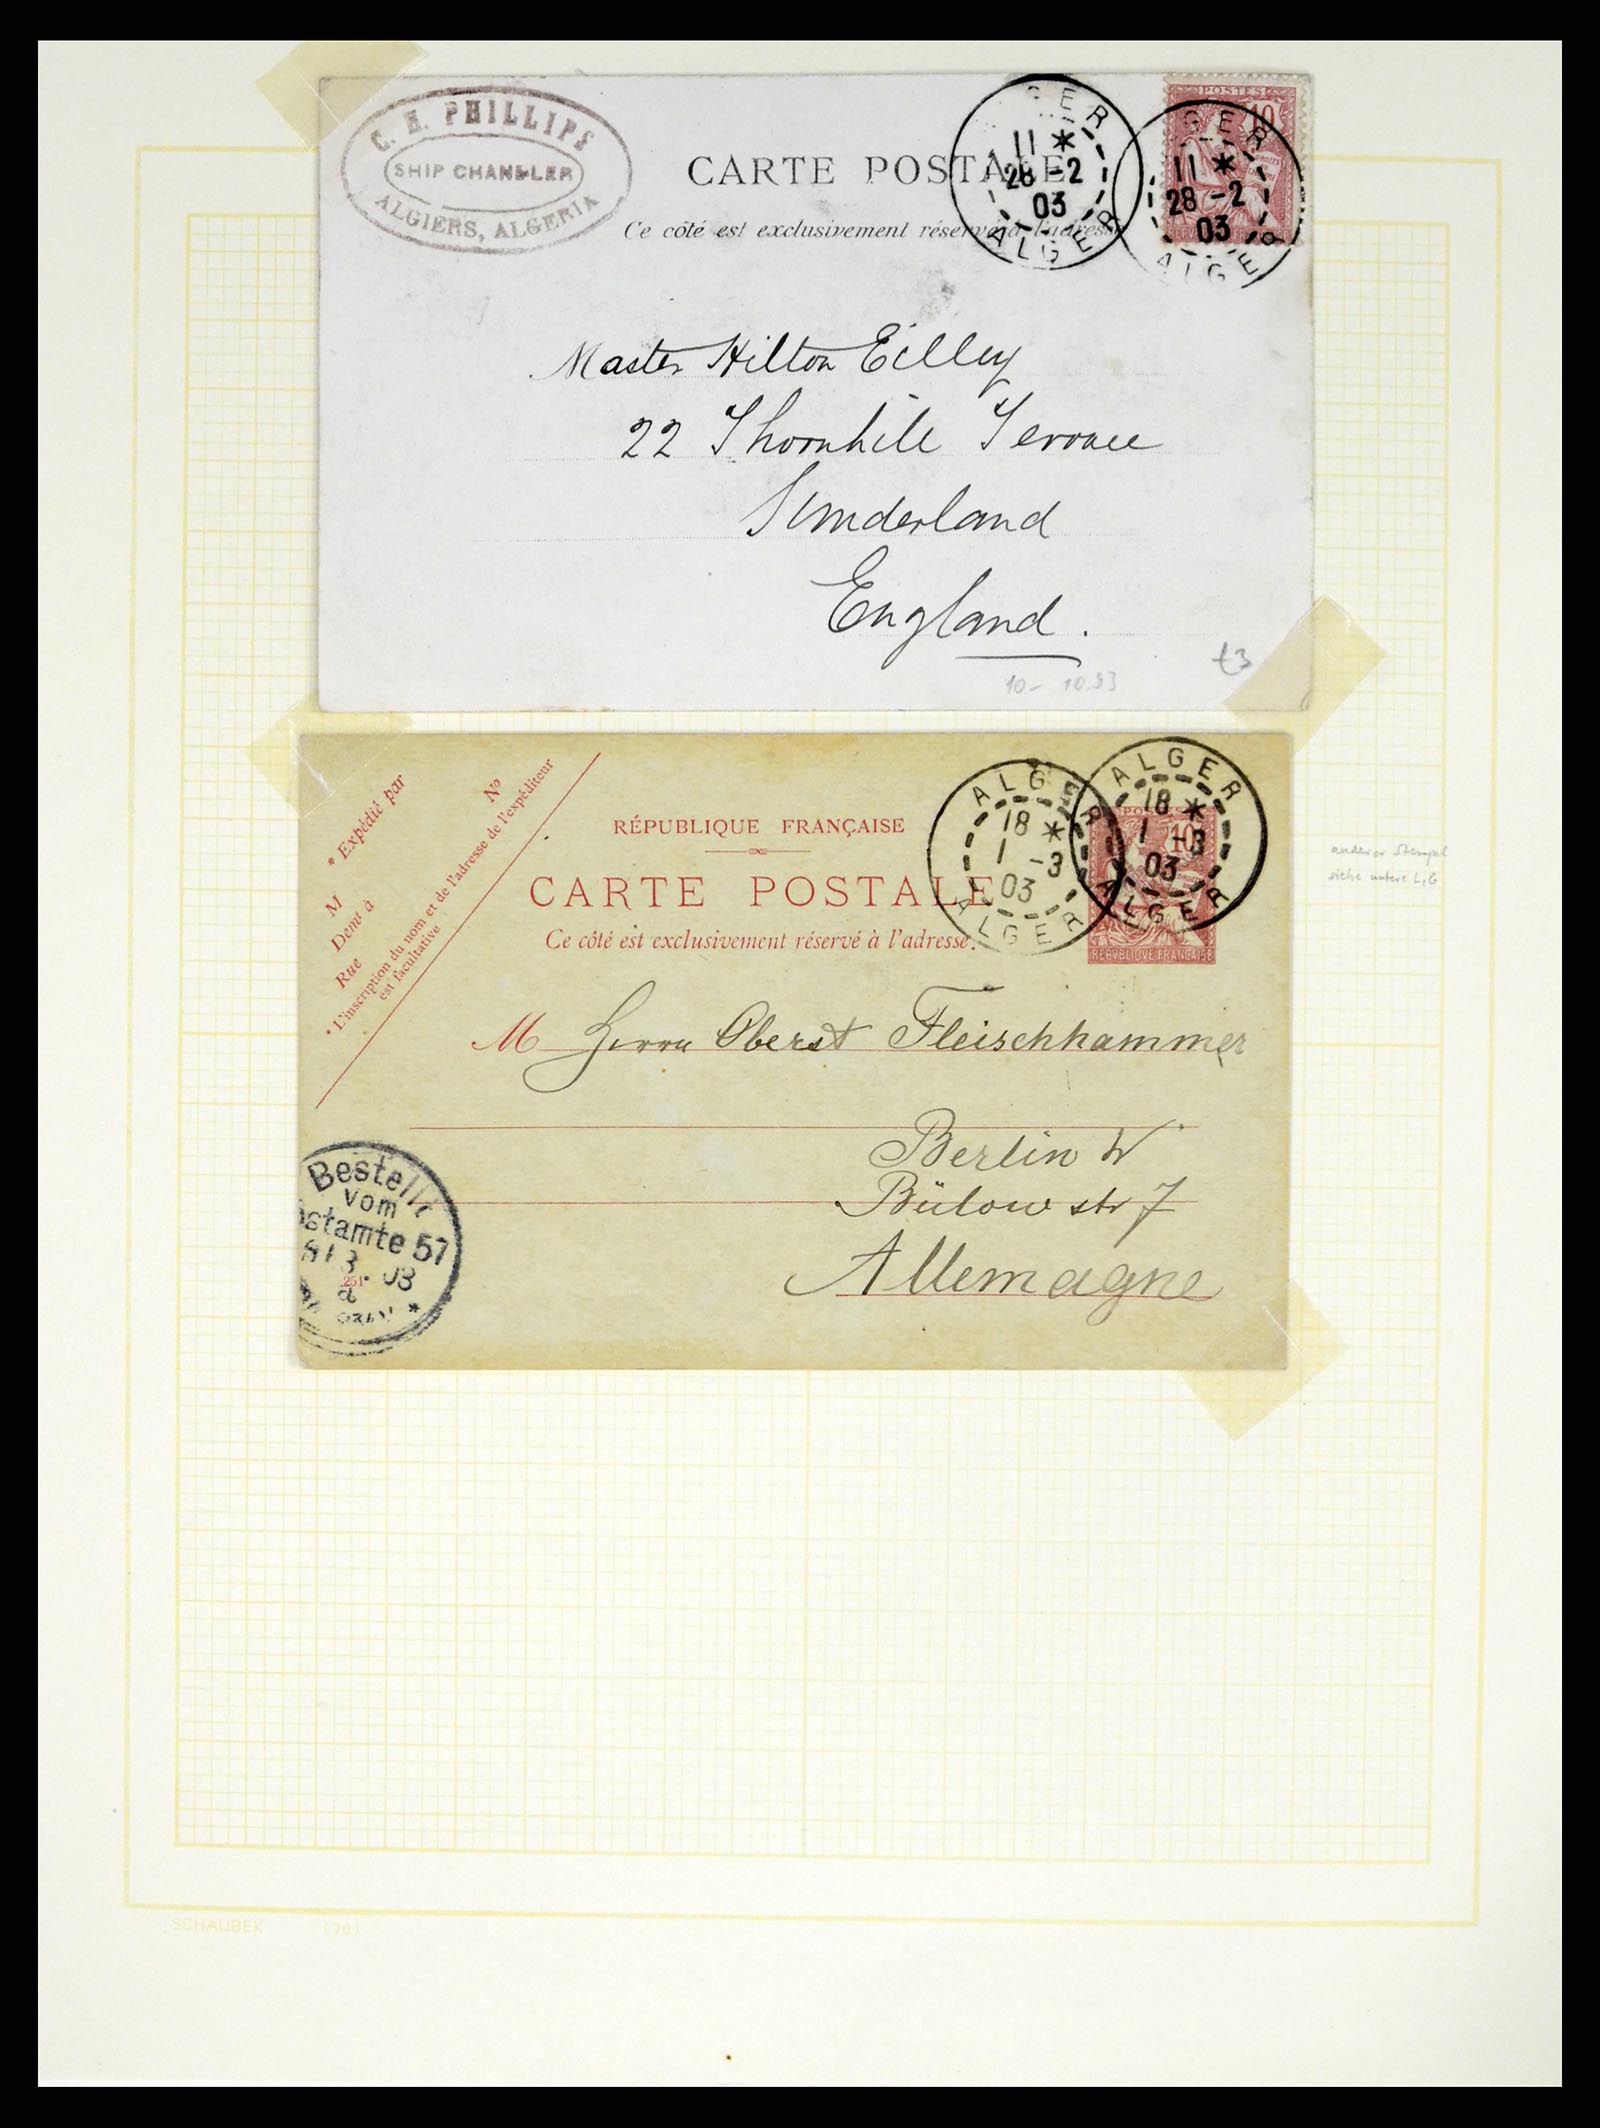 C. H. PHILLIPS
SHIP CHANDLER
ALGIERS, ALGERIA
CARTE POSTALE
Ce côté est exclusivement réservé à l'adresse
GER
11 *
28 -2
03
ALGER
POSTES
10
GER
11 *
28 -2
03
ALGER
Master Hilton Eilley
22 Thornhill Terrace
Sunderland
England.
£3
10- 10.93
* Expédié par
M
Demt à
Rue
Nº
* L'inscription du nom et de l'adresse de l'expéditeur
est facultative
RÉPUBLIQUE FRANÇAISE
CARTE POSTALE
Ce côté est exclusivement réservé à l'adresse.
ALGER
18 *
1 -3
03
ALGER
POSTES
10
REPVBLIQVE FRANÇAISE
ALGER
18 *
1 -3
03
ALGER
anderer Stempel
siehe untere L,G
M Herrn Oberst Fleischhammer
Berlin W
Bülow str 7
Allemagne
Bestellt
vom
ostamte 57
3 03
251
SCHAUBEK (76)